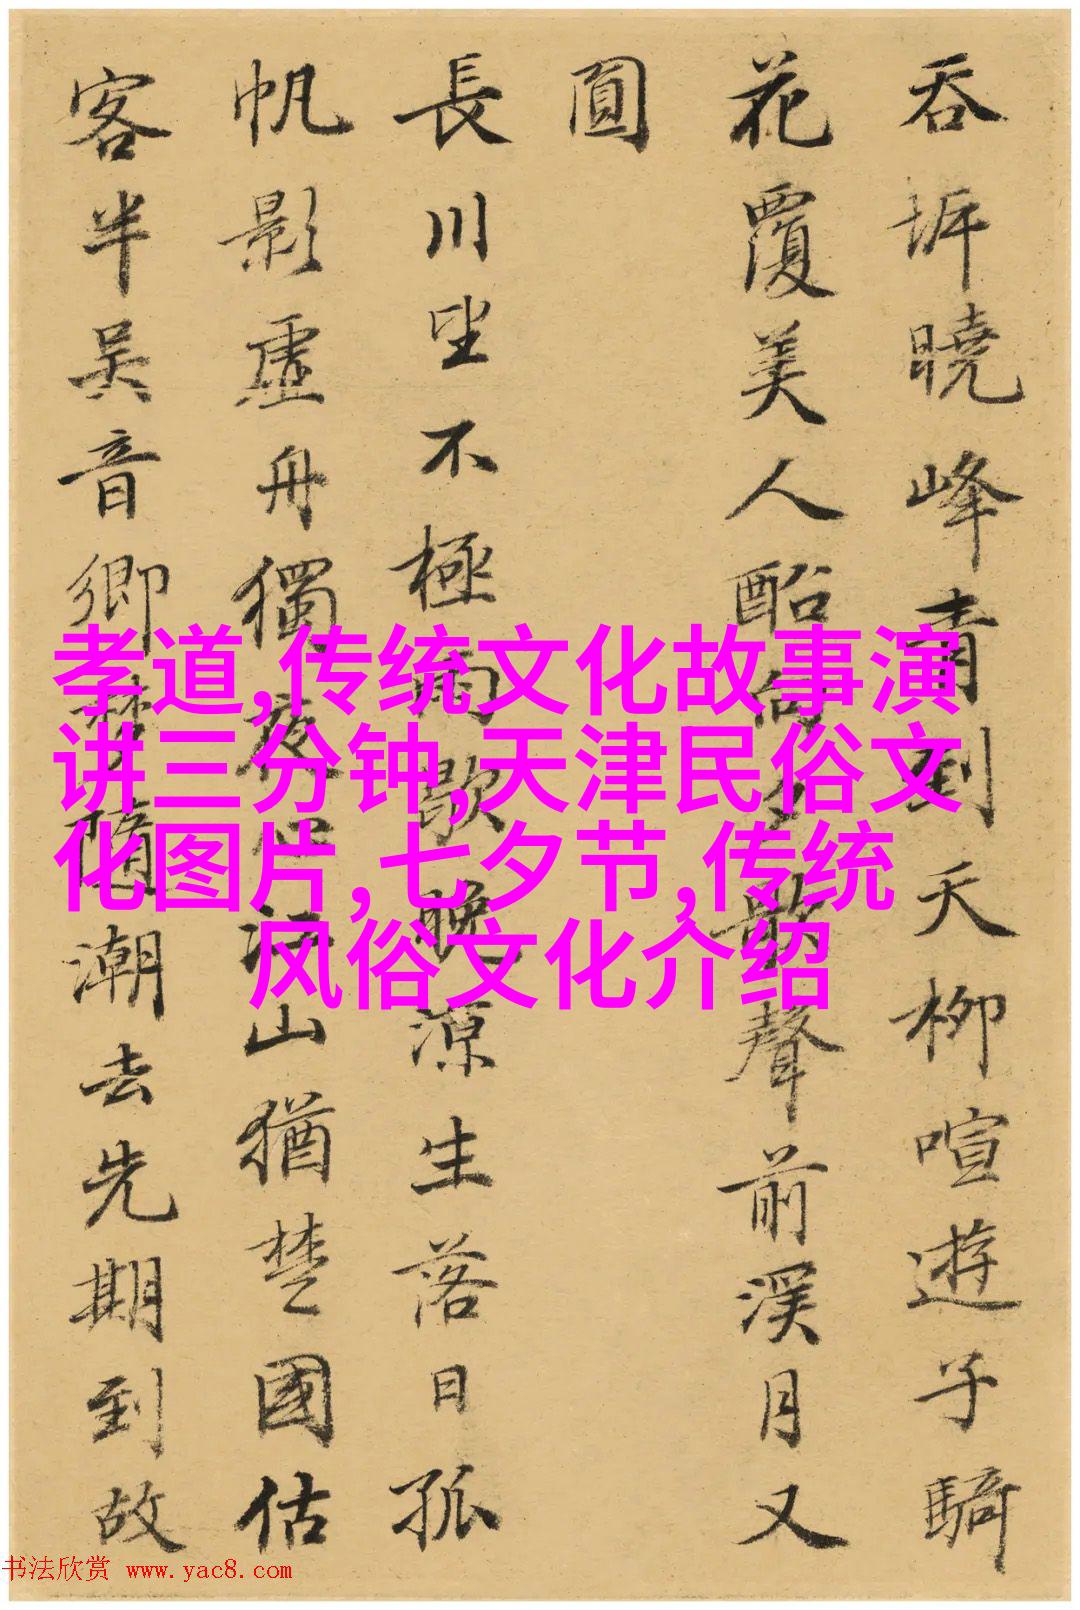 吞坼曉峰青到天柳喧遊子騎
花覆美人船向夕聲前溪月又
圓
長川坐不極雨歇晚涼生落日孤
帆影虛舟獨夜心江山猶楚國估
客半吳音鄉夢隨潮去先期到故
孝道,传统文化故事演
讲三分钟,天津民俗文
化图片,七夕节,传统
风俗文化介绍
书法欣赏 www.yac8.com